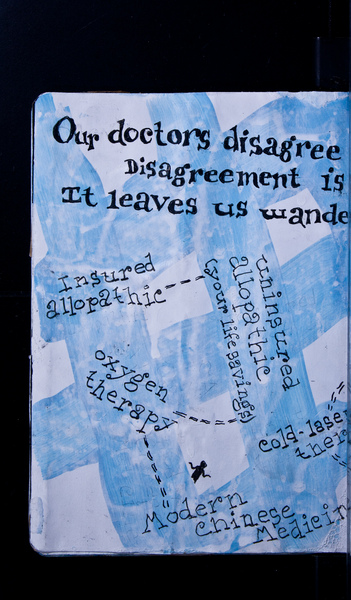 Our doctors disagree
Disagreement is
It leaves us wande
Insured
allopathic
uninsured
allopathic
(your life savings)
oxygen
therapy
cold-laser
ther
Modern
Chinese
Medicin